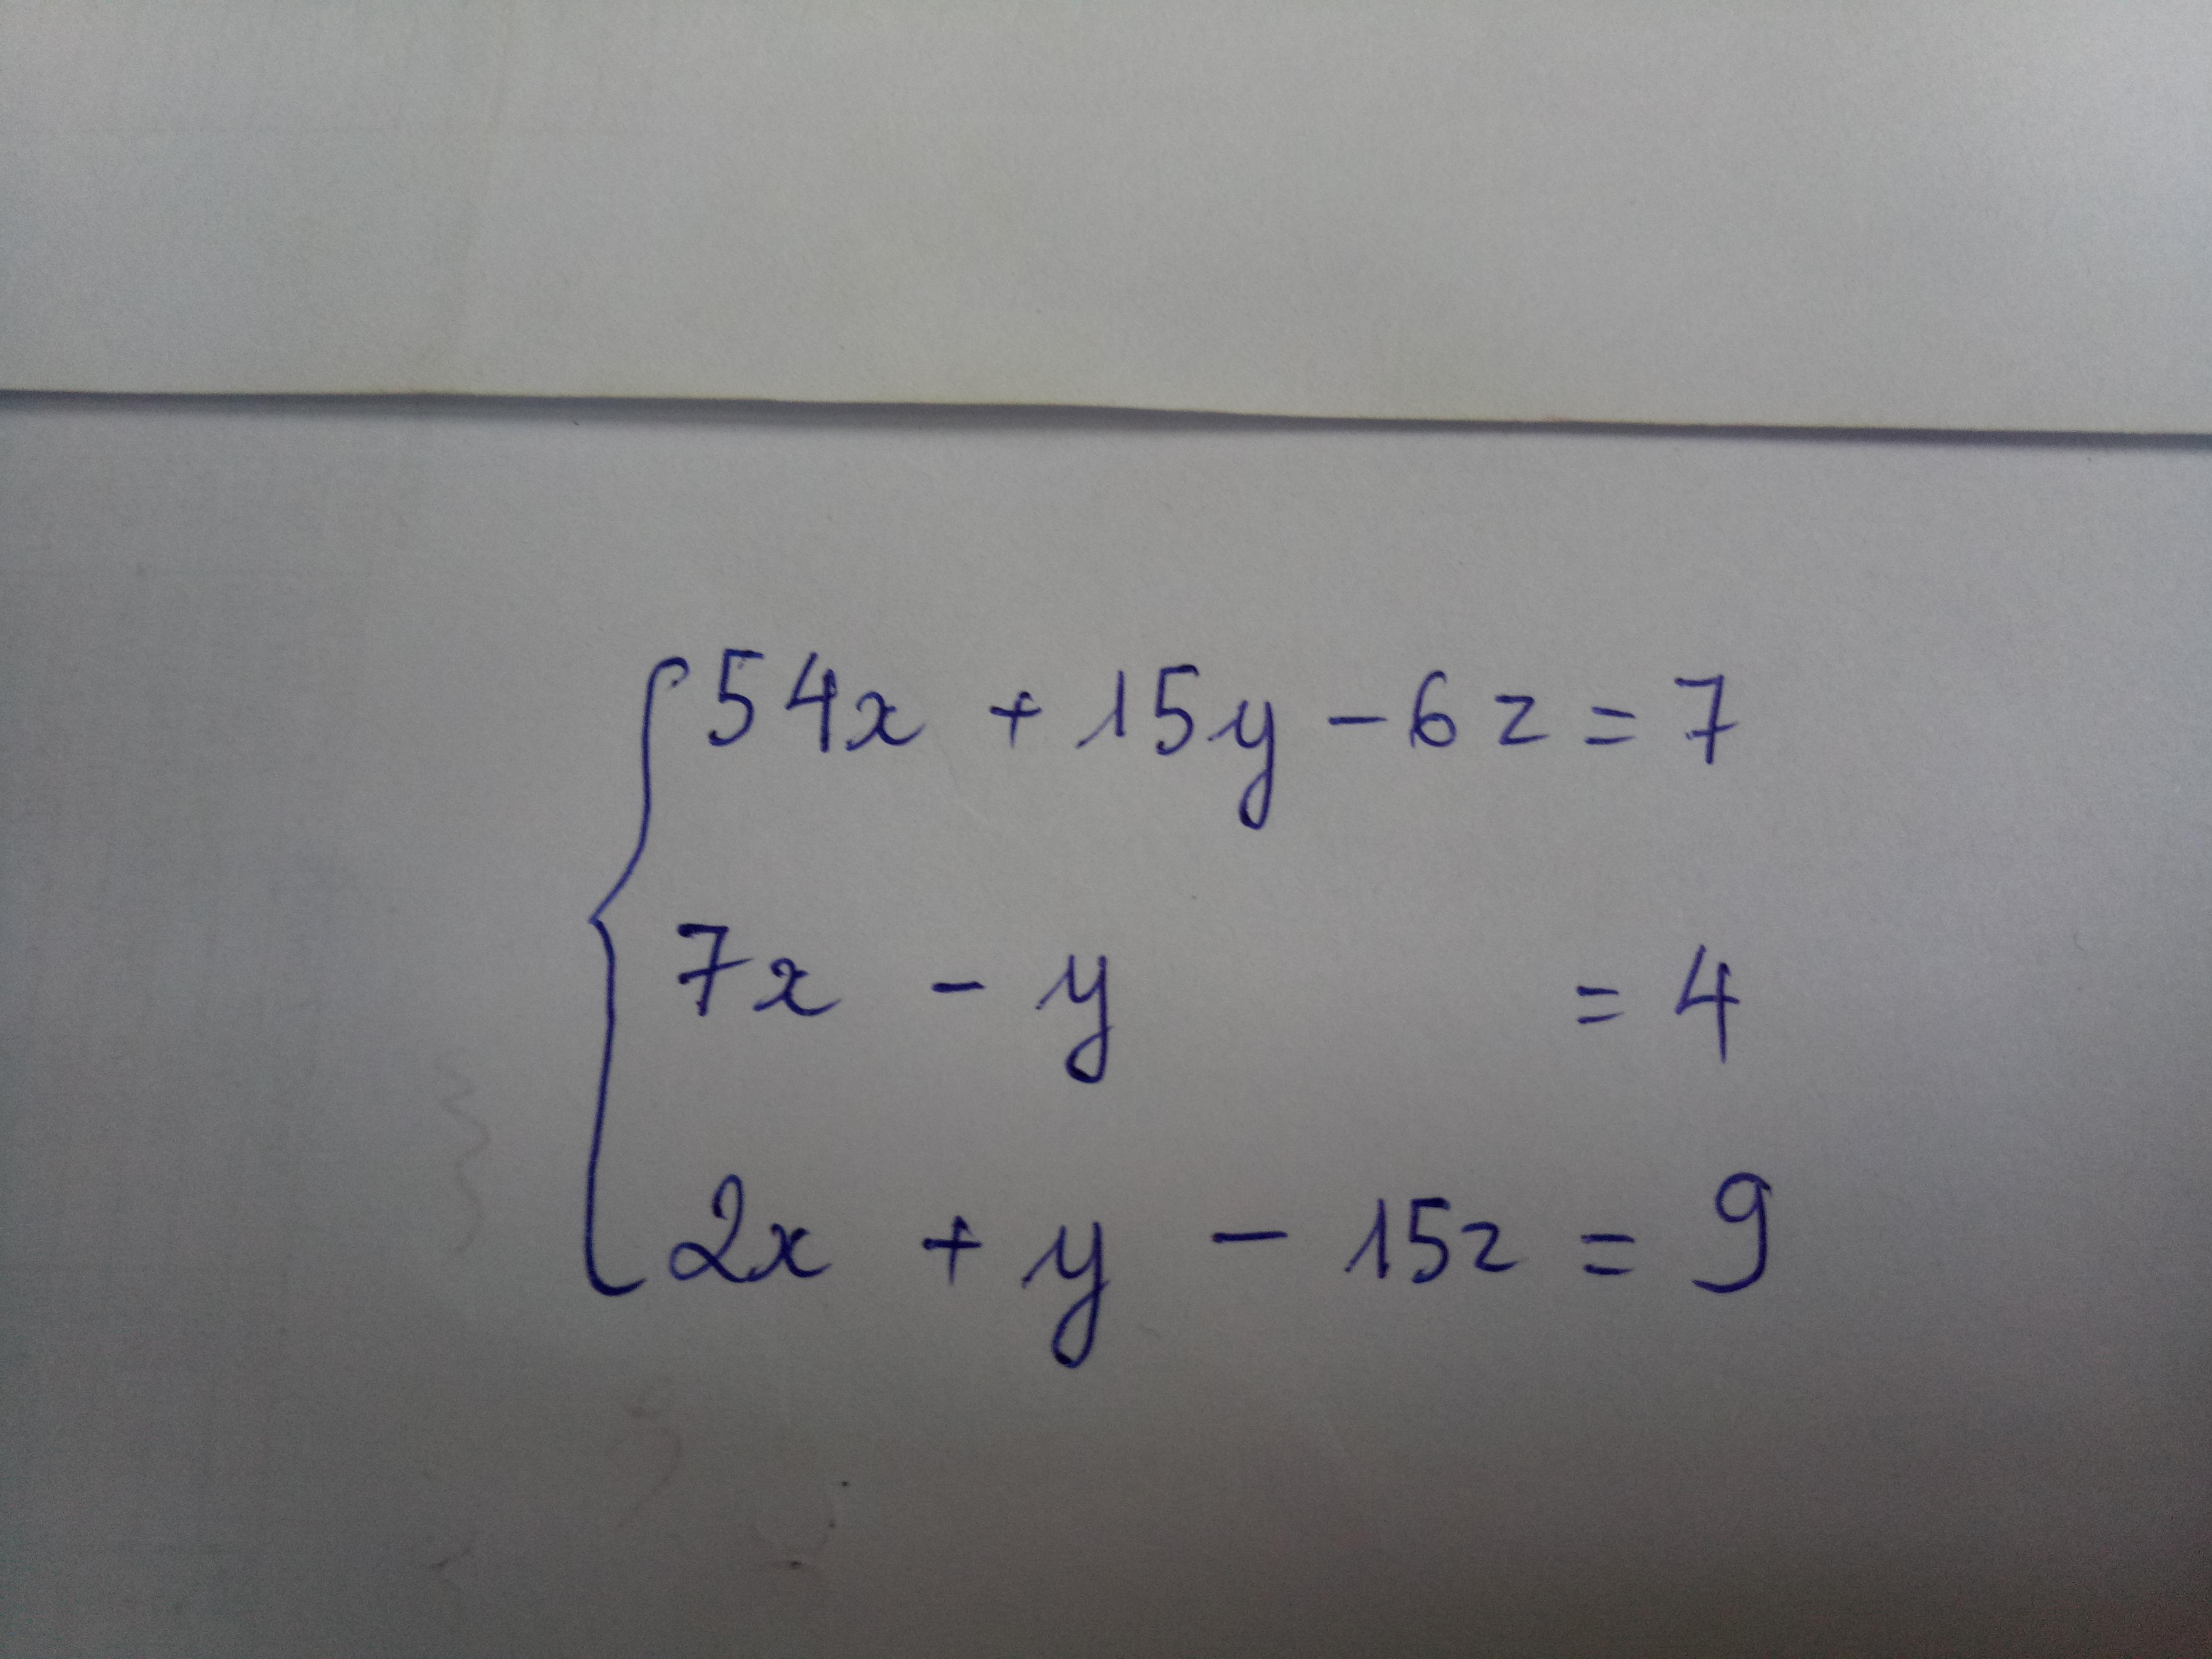 54x + 15y - 6z = 7
7x - y = 4
2x + y - 15z = 9